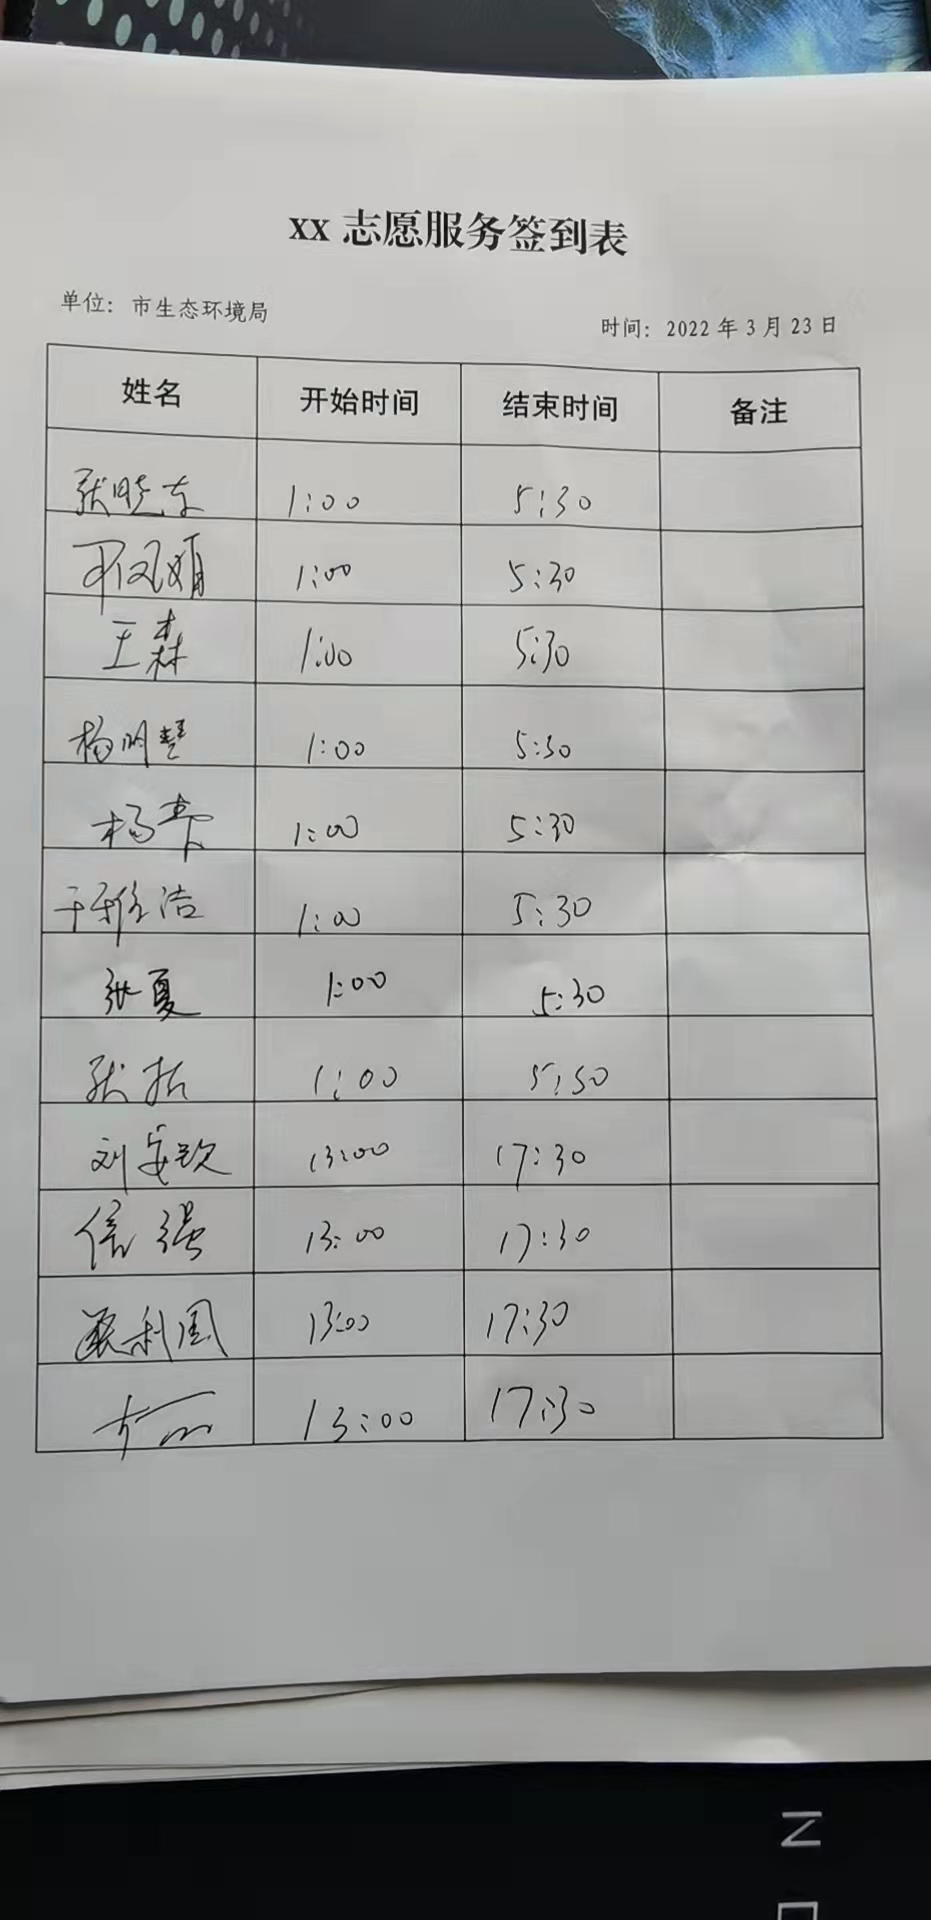 xx 志愿服务签到表
单位：市生态环境局
时间：2022 年 3 月 23 日
姓名 开始时间 结束时间 备注
张晓东 1:00 5:30
凤娟 1:00 5:30
王森 1:00 5:30
杨明慧 1:00 5:30
杨 1:00 5:30
于雅洁 1:00 5:30
张夏 1:00 5:30
张 1:00 5:30
刘安欣 13:00 17:30
信强 13:00 17:30
利国 13:00 17:30
13:00 17:30
N